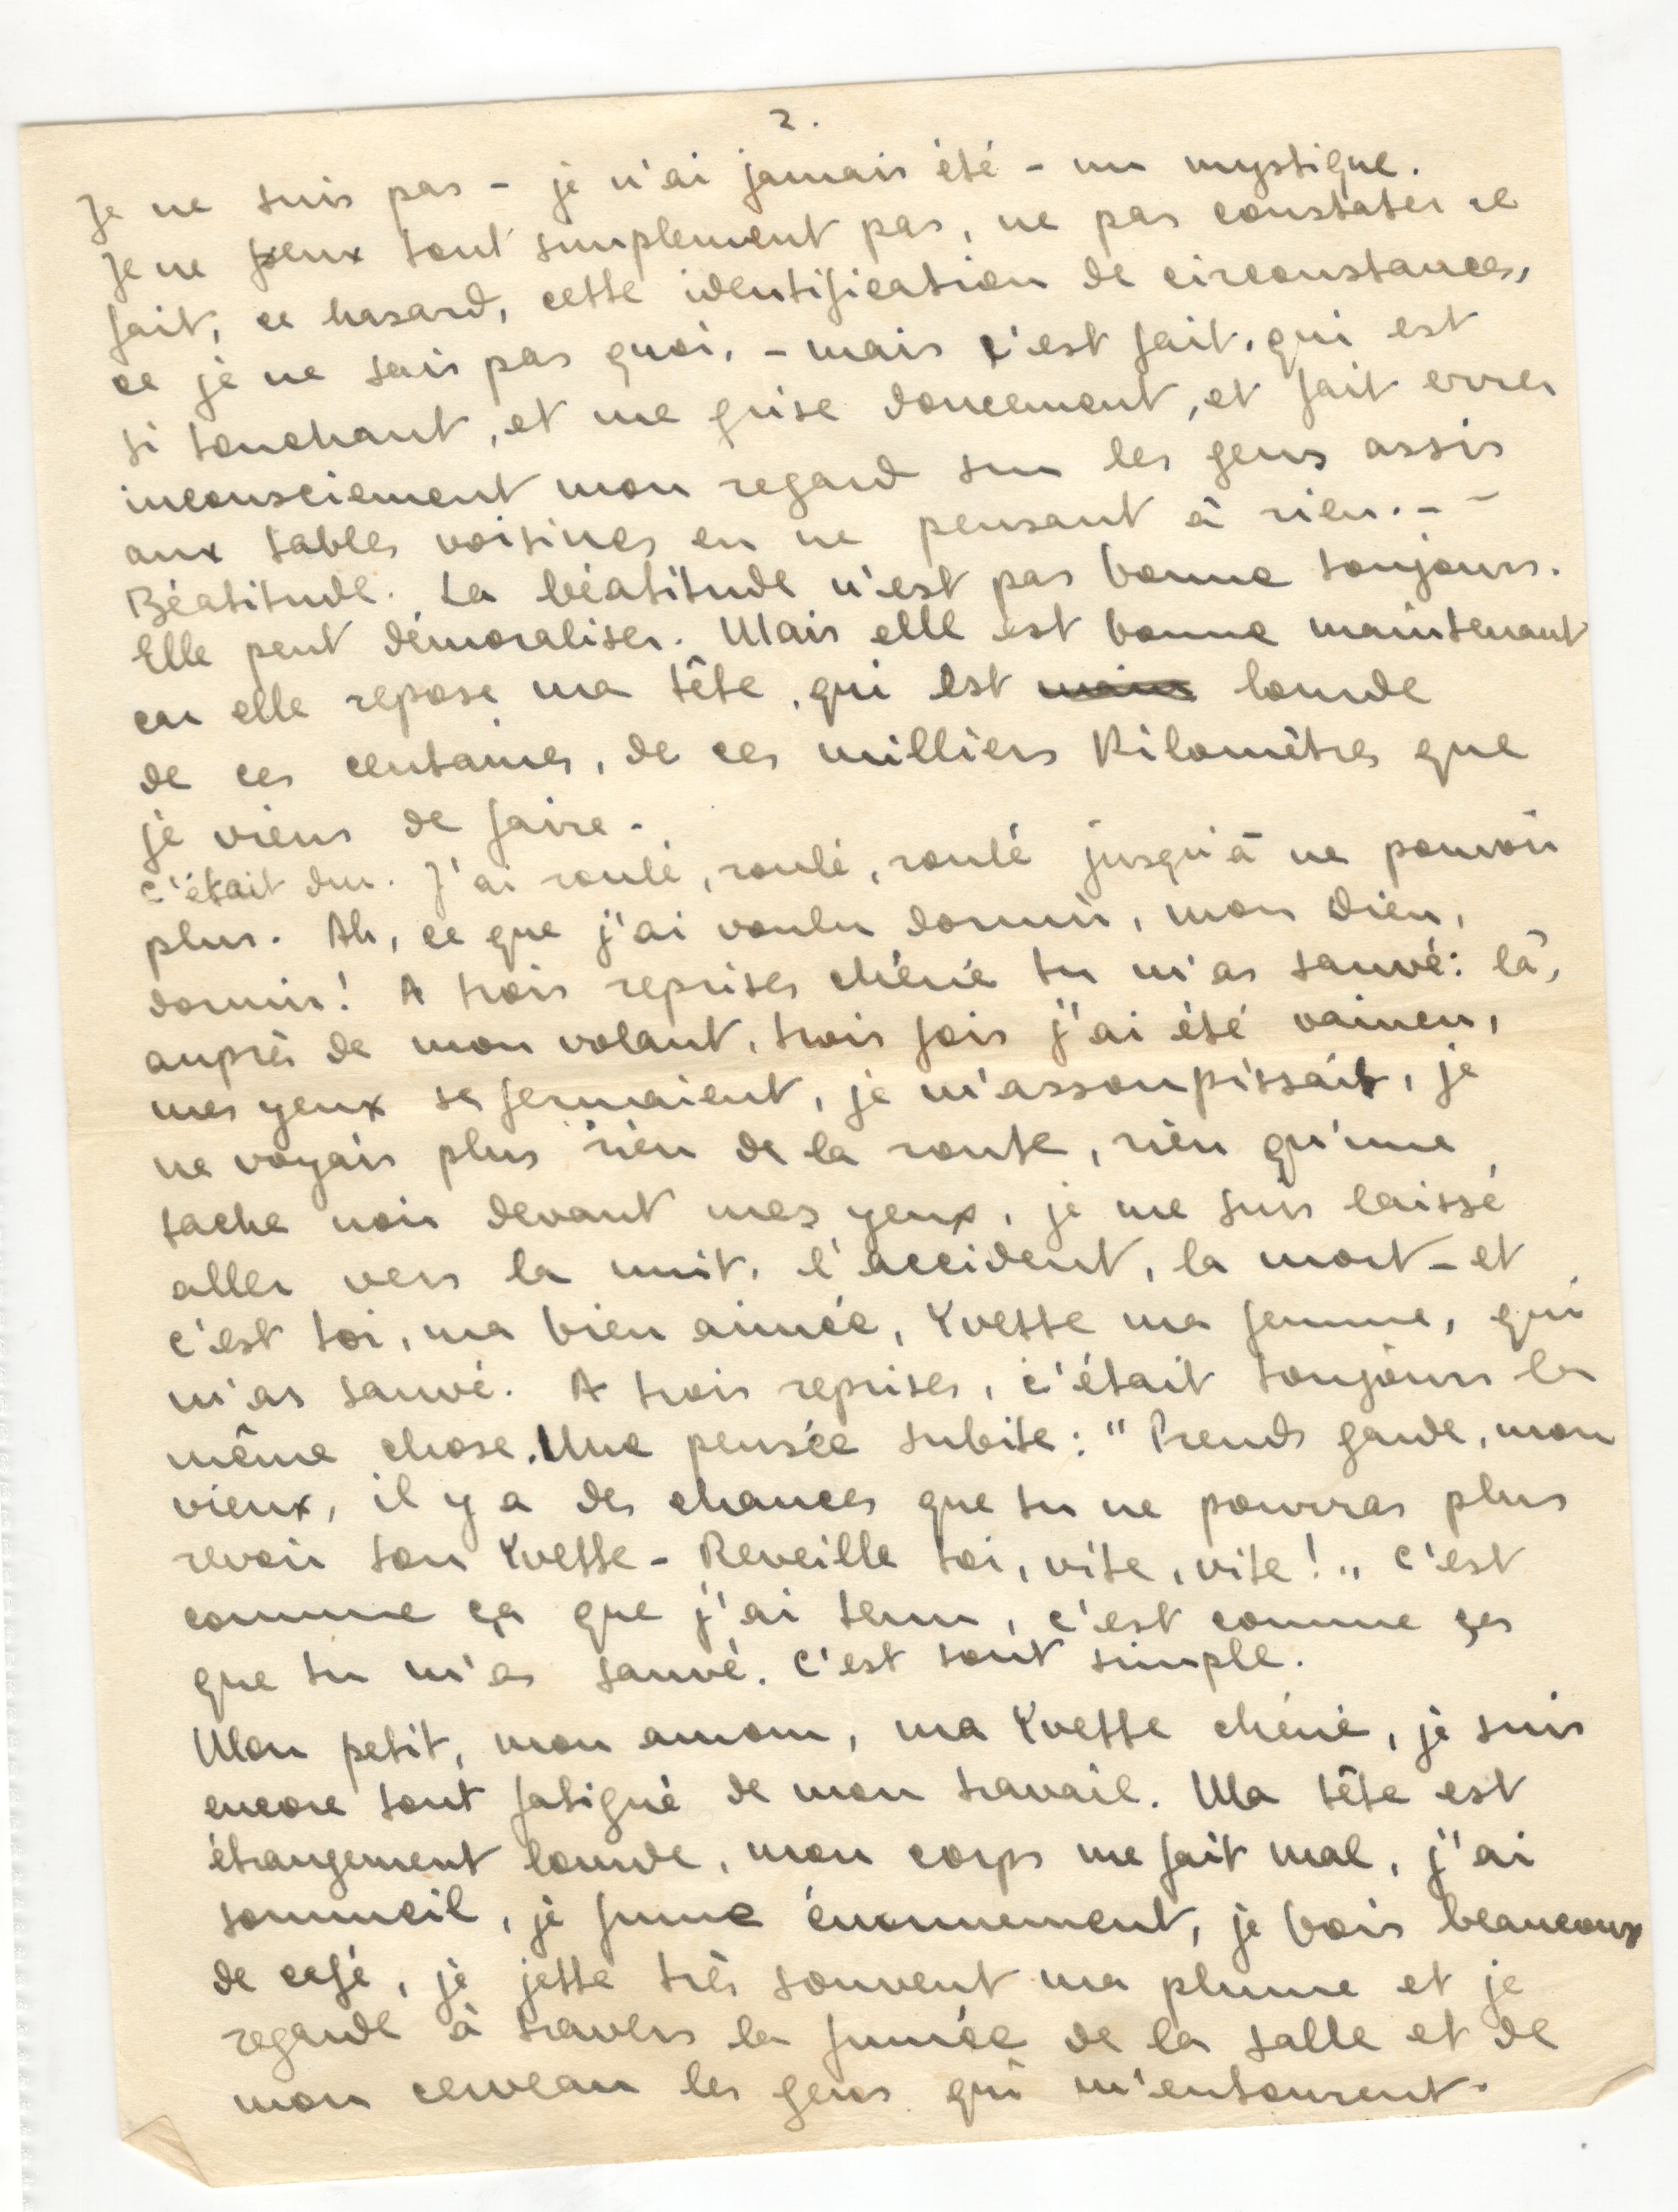 2.
Je ne suis pas - je n'ai jamais été - un mystique.
Je ne peux tout simplement pas, ne pas constater ce
fait, ce hasard, cette identification de circonstances,
ce je ne sais pas quoi, - mais c'est fait, qui est
si touchant, et me grise doucement, et fait errer
inconsciement mon regard sur les gens assis
aux tables voisines en ne pensant à rien. - -
Béatitude. La béatitude n'est pas bonne toujours.
Elle peut démoraliser. Mais elle est bonne maintenant
car elle repose ma tête, qui est lourde
de ces centaines, de ces milliers Kilomètres que
je viens de faire.
C'était dur. J'ai roulé, roulé, roulé jusqu'à ne pouvoir
plus. Ah, ce que j'ai voulu dormir, mon Dieu,
dormir! A trois reprises chérie tu m'as sauvé: là,
auprès de mon volant, trois fois j'ai été vaincu,
mes yeux se fermaient, je m'assoupissais, je
ne voyais plus rien de la route, rien qu'une
tache noir devant mes yeux, je me suis laissé
aller vers la nuit, l'accident, la mort - et
c'est toi, ma bien aimée, Yvette ma femme, qui
m'as sauvé. A trois reprises, c'était toujours la
même chose. Une pensée subite: "Prends garde, mon
vieux, il y a des chances que tu ne pourras plus
revoir ton Yvette - Reveille toi, vite, vite!" C'est
comme ça que j'ai tenu, c'est comme ça
que tu m'as sauvé. C'est tout simple.
Mon petit, mon amour, ma Yvette chérie, je suis
encore tout fatigué de mon travail. Ma tête est
étrangement lourde, mon corps me fait mal, j'ai
sommeil, je fume énormement, je bois beaucoup
de café, je jette très souvent ma plume et je
regarde à travers la fumée de la salle et de
mon cerveau les gens qui m'entourent.